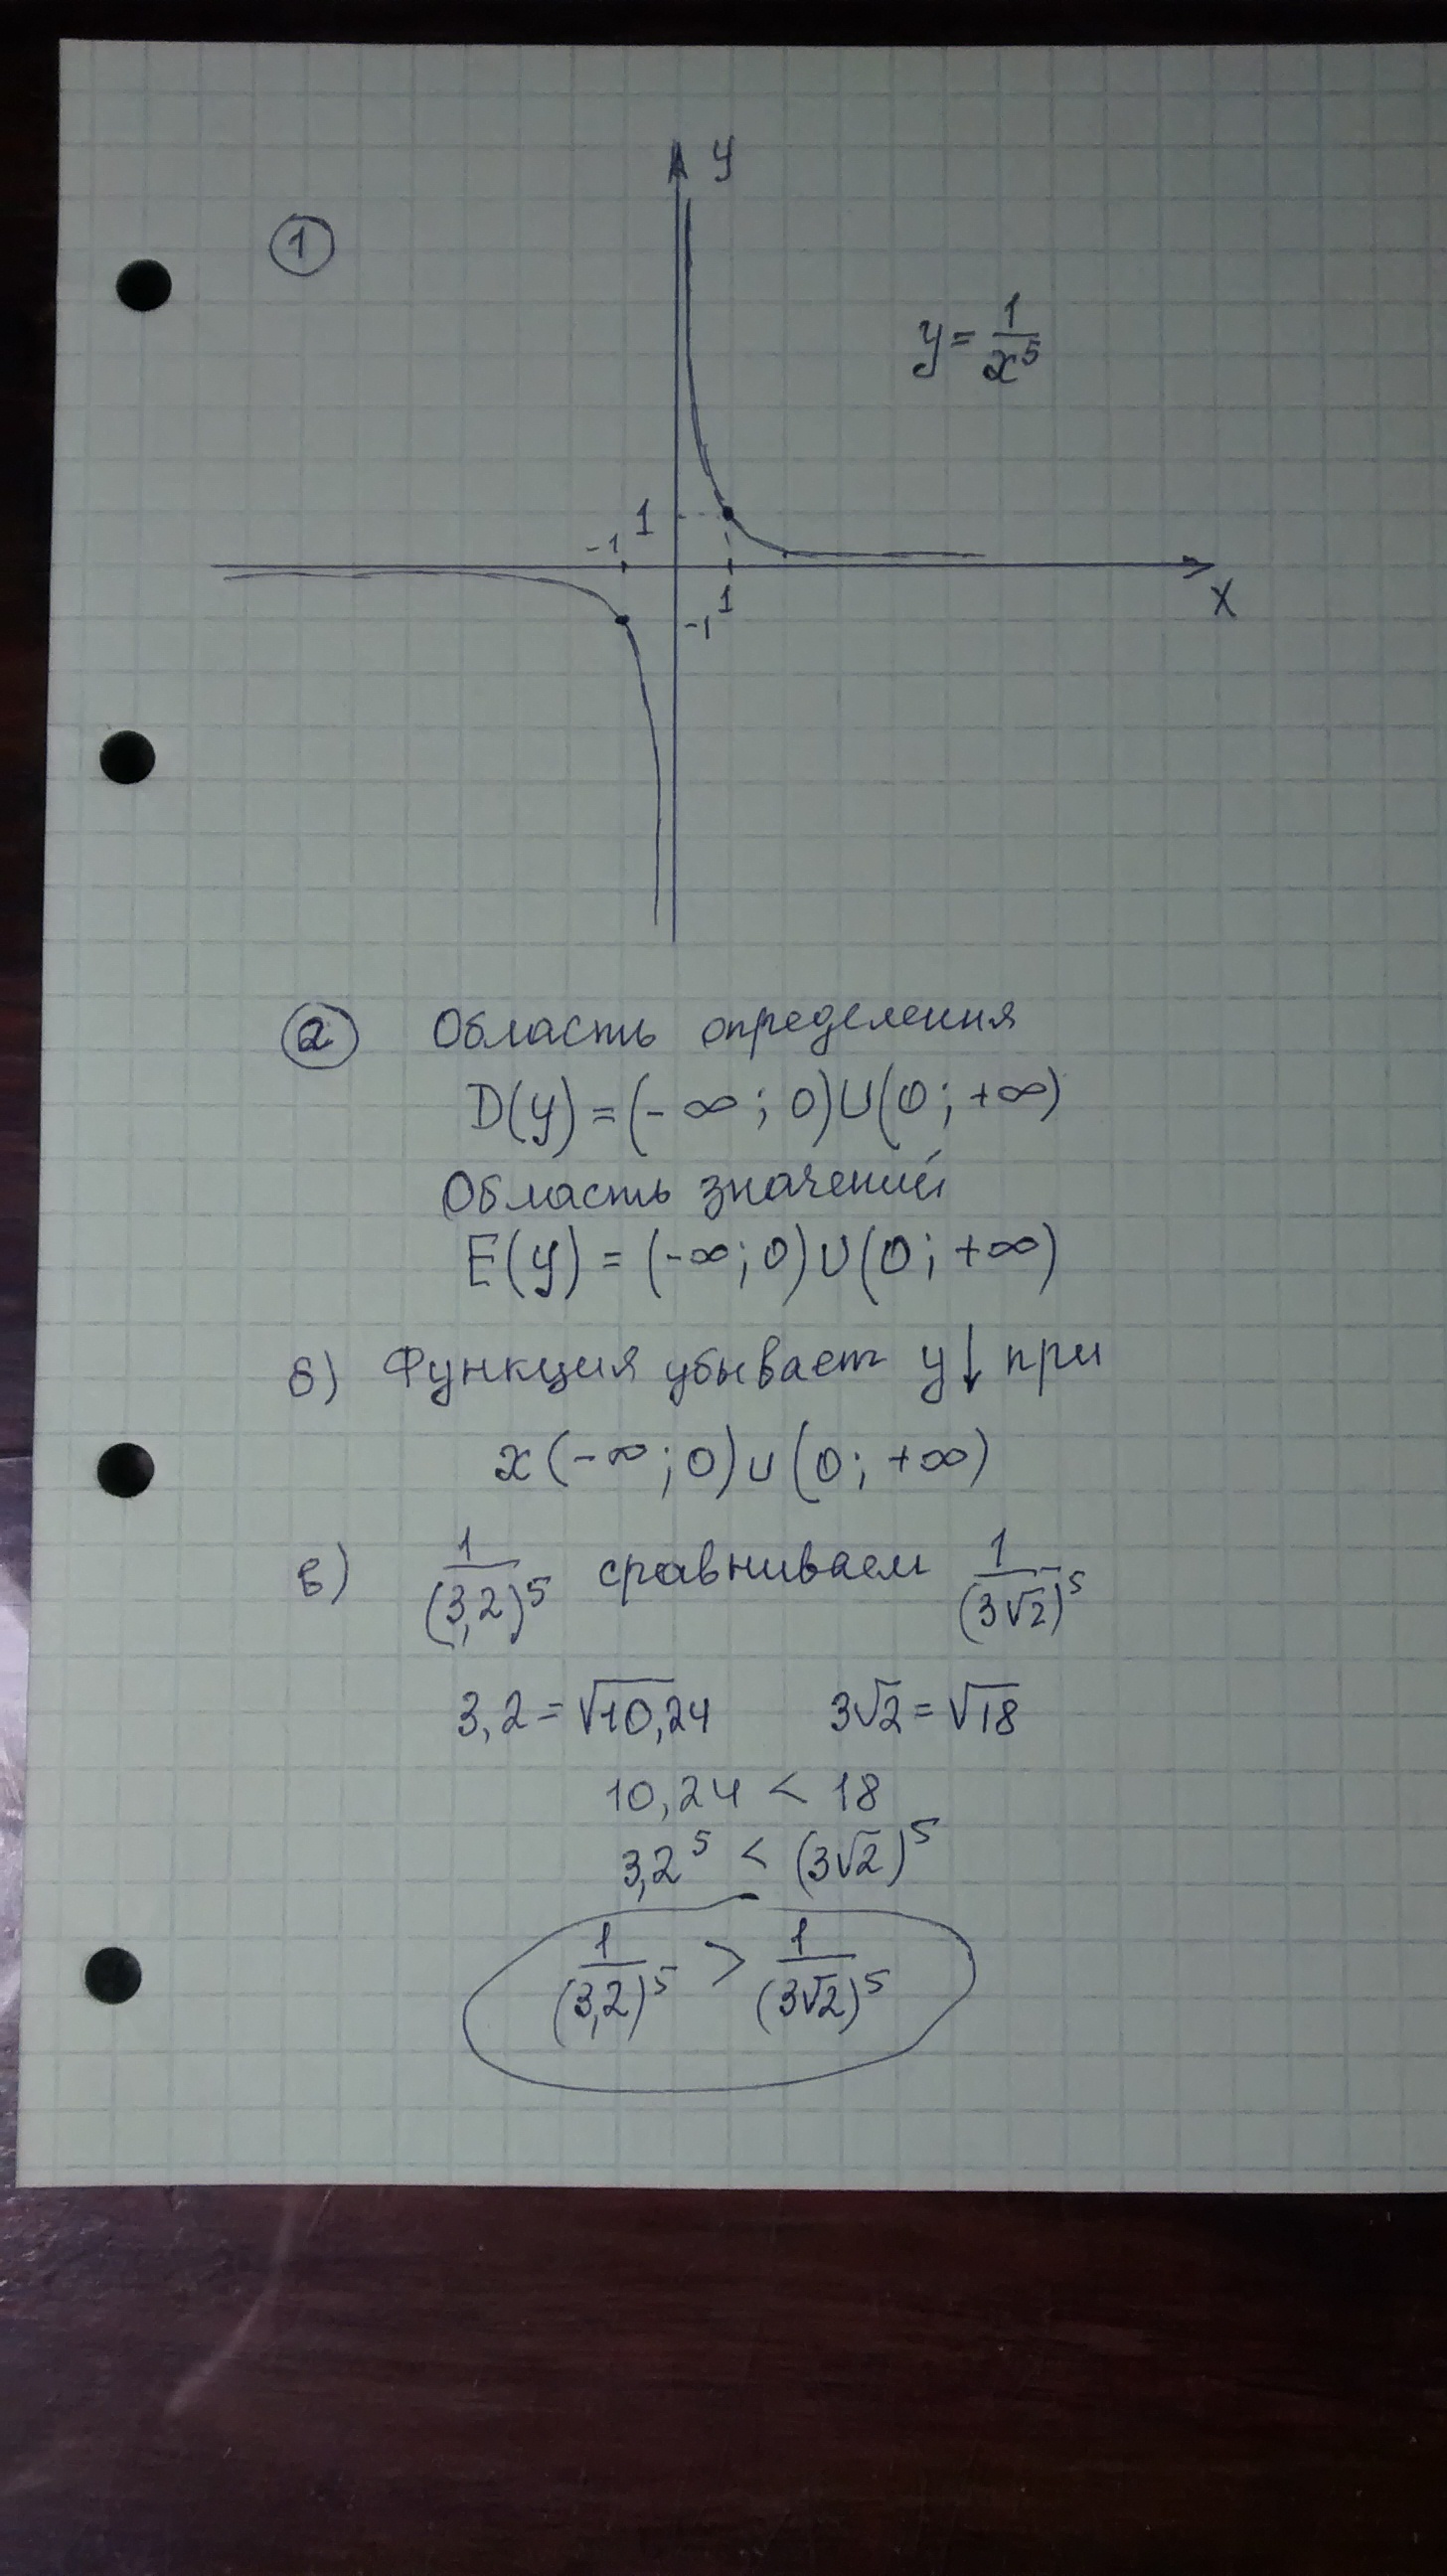 y
1
y = 1/x⁵
-1 1
1
X
-1
2 Область определения
D(y) = (-∞; 0)∪(0; +∞)
Область значений
E(y) = (-∞; 0)∪(0; +∞)
б) Функция убывает y↓ при
x(-∞; 0)∪(0; +∞)
в) 1/(3,2)⁵ сравниваем 1/(3√2)⁵
3,2 = √10,24 3√2 = √18
10,24 < 18
3,2⁵ < (3√2)⁵
1/(3,2)⁵ > 1/(3√2)⁵